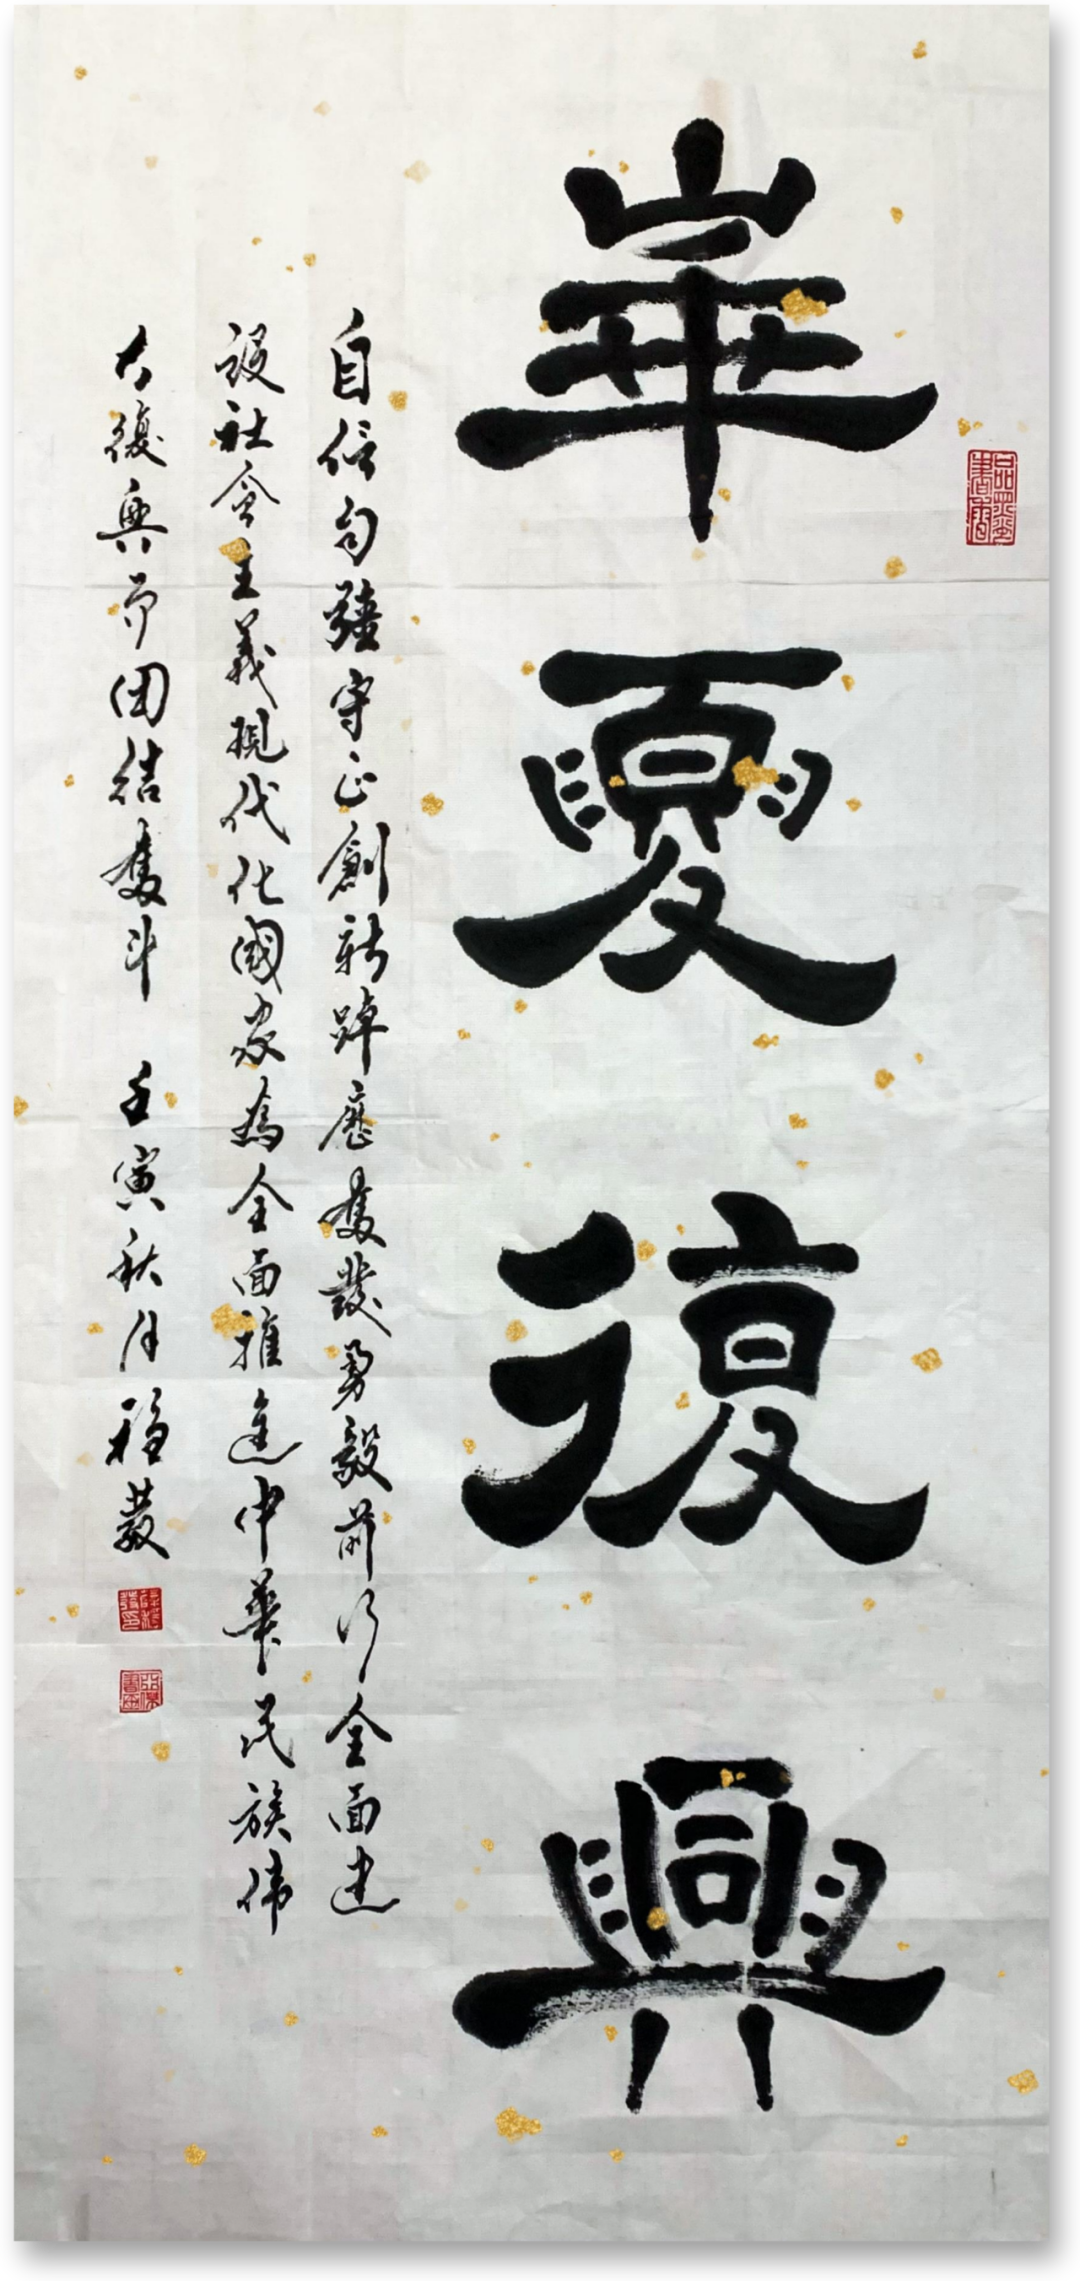 華夏復興
自信自強守正創新踔厲奮發勇毅前行全面建
設社會主義現代化國家為全面推進中華民族伟
大復興而团結奮斗 壬寅秋月 穆發